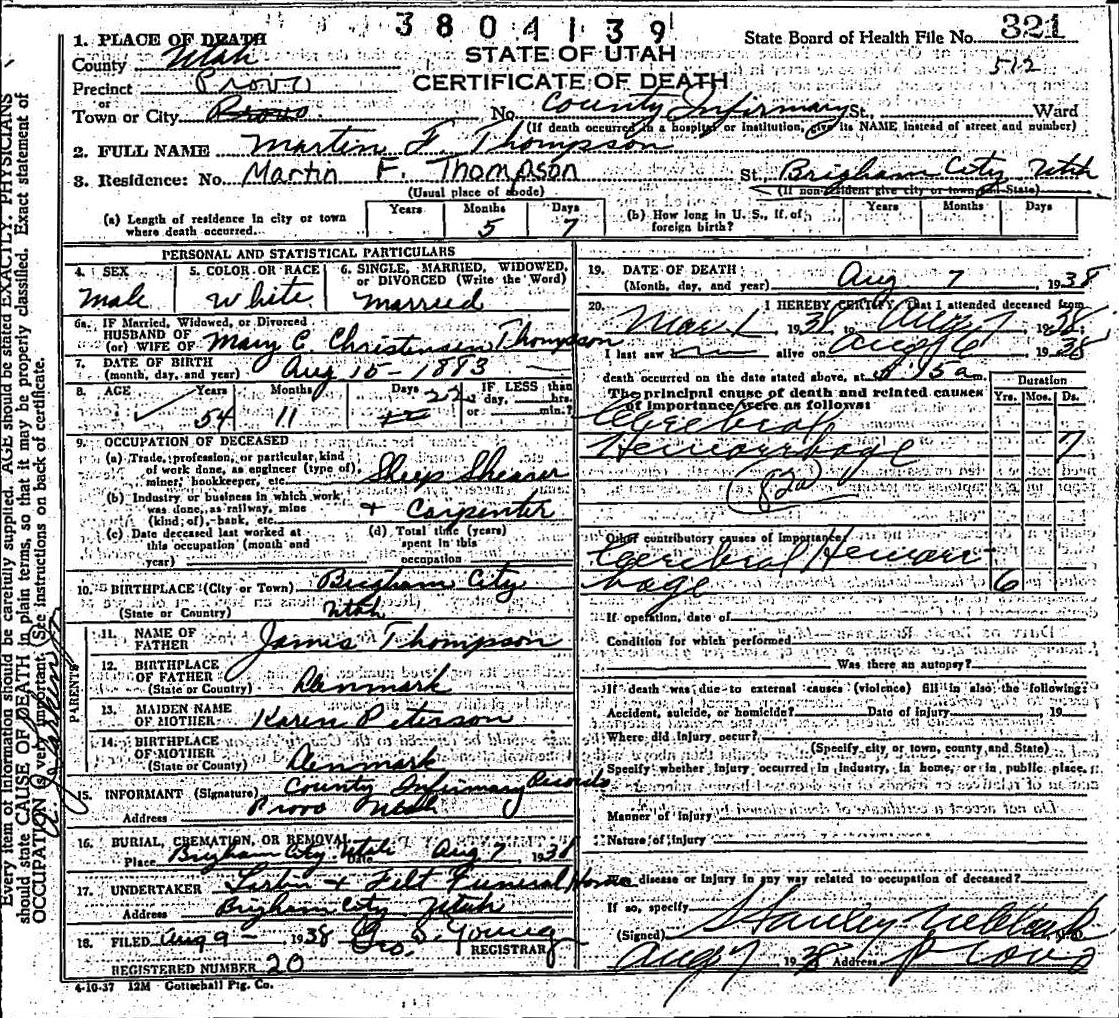 3804139
1. PLACE OF DEATH
STATE OF UTAH
State Board of Health File No. 321
County Utah
CERTIFICATE OF DEATH
512
Precinct Provo
or
Town or City Provo. No. County Infirmary St., Ward
(If death occurred in a hospital or institution, give its NAME instead of street and number)
2. FULL NAME Martin F. Thompson
3. Residence: No. Martin F. Thompson St., Brigham City Utah
(Usual place of abode) (If non-resident give city or town and State)
(a) Length of residence in city or town where death occurred. Years Months 5 Days 7
(b) How long in U. S., if of foreign birth? Years Months Days
PERSONAL AND STATISTICAL PARTICULARS
4. SEX Male
5. COLOR OR RACE White
6. SINGLE, MARRIED, WIDOWED, OR DIVORCED (Write the Word) Married
6a. IF Married, Widowed, or Divorced
HUSBAND OF
(or) WIFE OF Mary C. Christensen Thompson
7. DATE OF BIRTH
(month, day, and year) Aug 15 - 1883
8. AGE Years 54 Months 11 Days 22 IF LESS than day, hrs. or min.?
9. OCCUPATION OF DECEASED
(a) Trade, profession, or particular kind
of work done, as engineer (type of),
miner, bookkeeper, etc. Sheep Shearer
(b) Industry or business in which work
was done, as railway, mine
(kind of), bank, etc. + Carpenter
(c) Date deceased last worked at
this occupation (month and
year)
(d) Total time (years)
spent in this
occupation
10. BIRTHPLACE (City or Town) Brigham City
(State or Country) Utah
PARENTS
11. NAME OF
FATHER James Thompson
12. BIRTHPLACE
OF FATHER
(State or County) Denmark
13. MAIDEN NAME
OF MOTHER Karen Peterson
14. BIRTHPLACE
OF MOTHER
(State or County) Denmark
15. INFORMANT (Signature) County Infirmary Records
Address Provo Utah
16. BURIAL, CREMATION, OR REMOVAL
Place Brigham City Utah Date Aug 7, 1938
17. UNDERTAKER & Felt Funeral Home
Address Brigham City Utah
18. FILED Aug 9 - 1938 Geo. S. Young
REGISTRAR
REGISTERED NUMBER 20
4-10-37 12M Gottschall Ptg. Co.
19. DATE OF DEATH
(Month, day, and year) Aug 7 1938
20. I HEREBY CERTIFY, That I attended deceased from
Mar 1 1938 to Aug 7, 1938
I last saw alive on Aug 6, 1938
death occurred on the date stated above, at m.
The principal cause of death and related causes
of importance were as follows:
Duration
Yrs. Mos. Ds.
Cerebral
Hemorrhage 7
(82a)
Other contributory causes of importance:
Cerebral Hemorr-
hage 6
If operation, date of
Condition for which performed
Was there an autopsy?
If death was due to external causes (violence) fill in also the following:
Accident, suicide, or homicide? Date of injury, 19
Where did injury occur?
(Specify city or town, county and State)
Specify whether injury occurred in industry, in home, or in public place.
Manner of injury
Nature of injury
Was disease or injury in any way related to occupation of deceased?
If so, specify
(Signed) Stanley M.D.
Aug 7 1938 Address Provo
Every item of information should be carefully supplied. AGE should be stated EXACTLY. PHYSICIANS
should state CAUSE OF DEATH in plain terms, so that it may be properly classified. Exact statement of
OCCUPATION is very important. (See instructions on back of certificate.